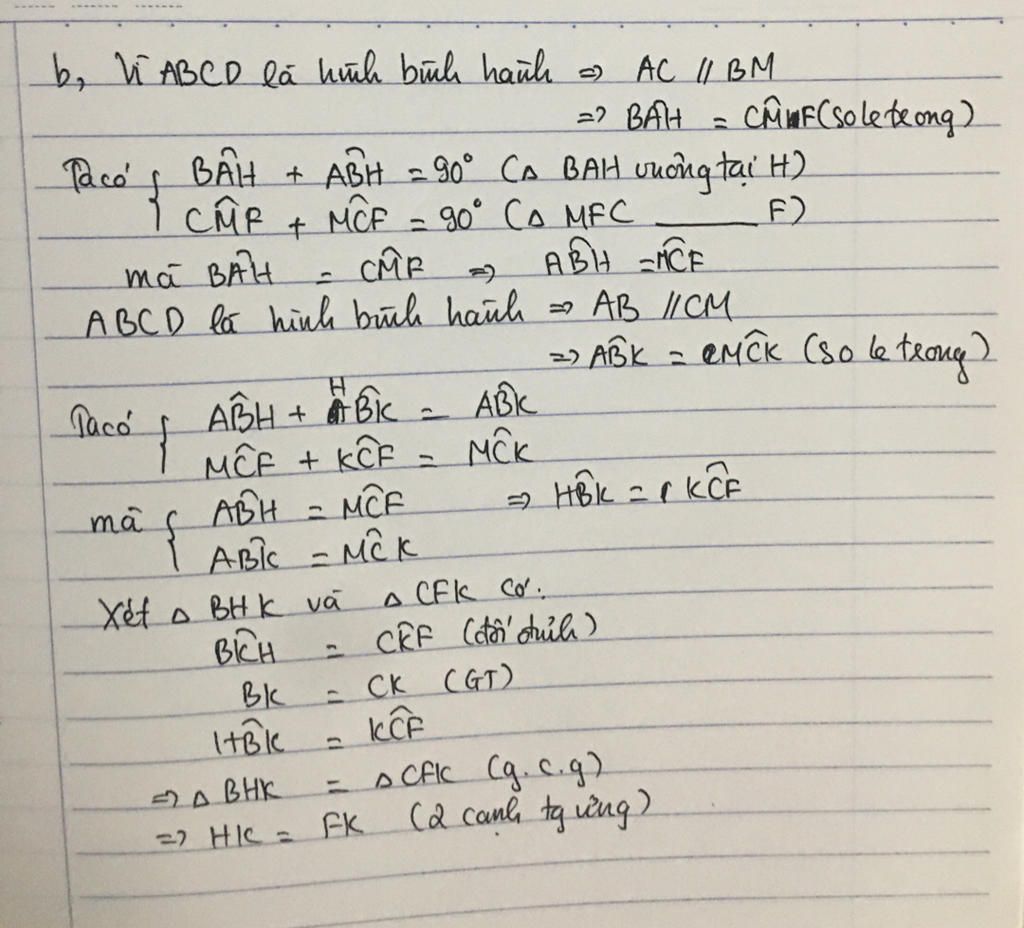 b, Vì ABCD là hình bình hành => AC // BM
=> BÂH = CM̂F (so le trong)
Ta có { BÂH + AB̂H = 90° (△ BAH vuông tại H)
CM̂F + MĈF = 90° (△ MFC ______ F)
mà BÂH = CM̂F => AB̂H = MĈF
ABCD là hình bình hành => AB // CM
=> AB̂K = MĈK (so le trong)
Ta có { AB̂H + HB̂K = AB̂K
MĈF + KĈF = MĈK
mà { AB̂H = MĈF => HB̂K = KĈF
AB̂K = MĈK
Xét △ BHK và △ CFK có:
BK̂H = CK̂F (đối đỉnh)
BK = CK (GT)
HB̂K = KĈF
=> △ BHK = △ CFK (g.c.g)
=> HK = FK (2 cạnh tg ứng)